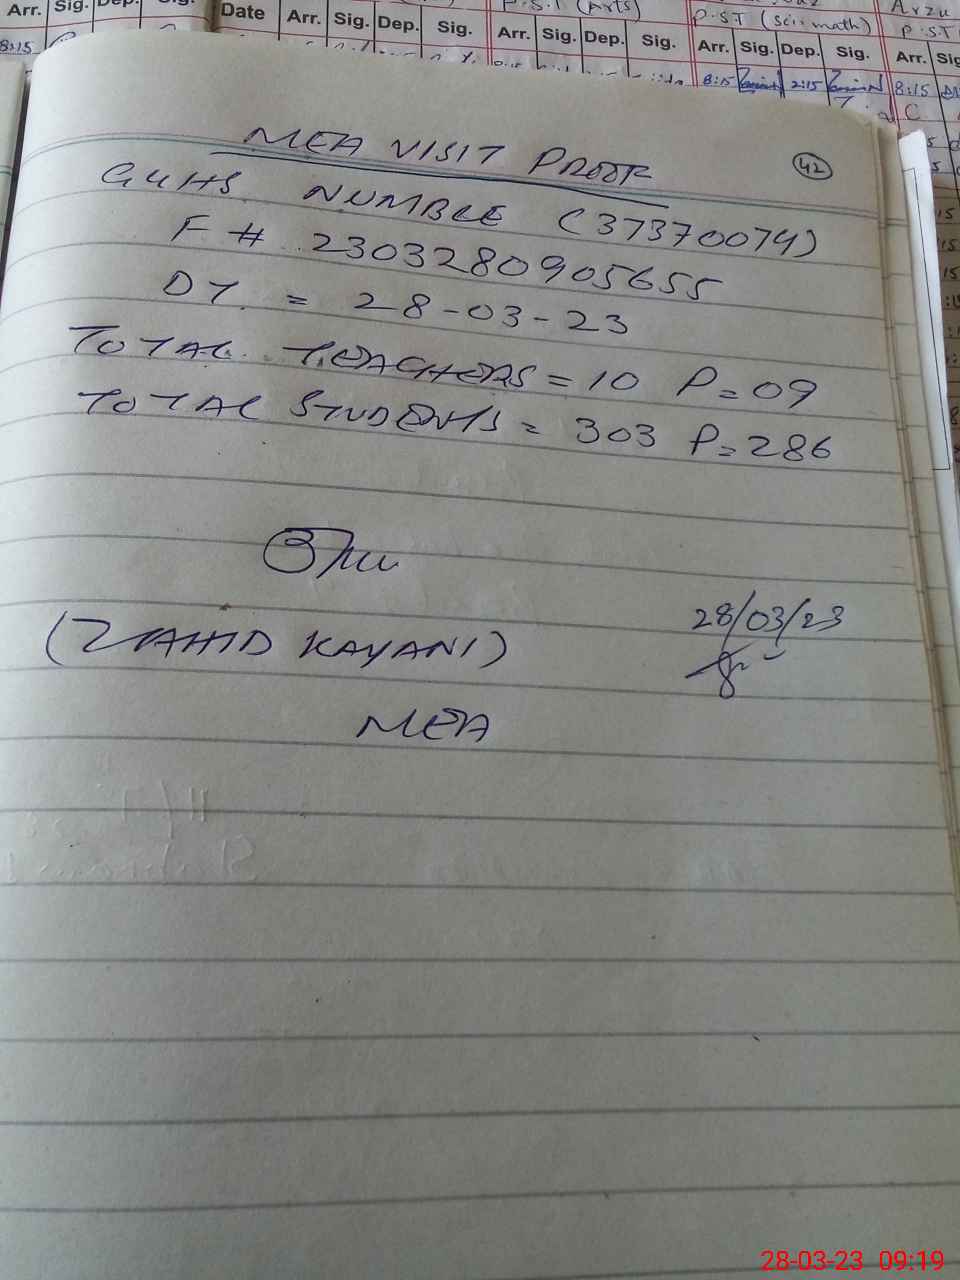 Arr. Sig. Dep. Sig. Date Arr. Sig. Dep. Sig. Arr. Sig. Dep. Sig. Arr. Sig. Dep. Sig. Arr.
P.S.T (Arts)
P.S.T (Sci: math)
Arzu
P.S.T
8:15
8:15 2:15 8:15
MEA VISIT PROOF
42
GGHS NUMBLE (37370074)
F # 2303280905655
DT. = 28-03-23
TOTAL TEACHERS = 10 P=09
TOTAL STUDENTS = 303 P=286
28/03/23
(ZAHID KAYANI)
MEA
28-03-23 09:19